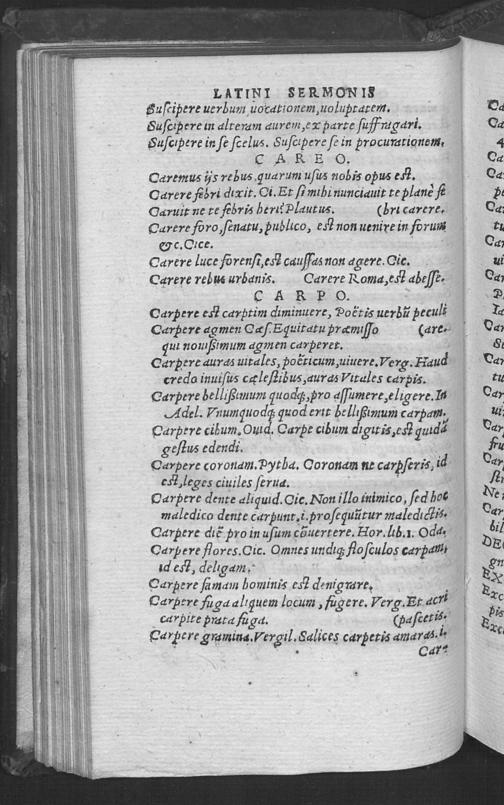 LATINI SERMONIS
Suscipere uerbum uocationem, uoluptatem.
Suscipere in alteram aurem, ex parte suffragari.
Suscipere in se scelus. Suscipere se in procurationem.
CAREO.
Caremus ijs rebus quarum usus nobis opus est.
Carere febri dixit. Ci. Et si mihi nunciauit te planè fe
Caruit ne te febris heri? Plautus. (bri carere.
Carere foro, senatu, publico, est non uenire in forum
&c. Cice.
Carere luce forensi, est caussas non agere. Cic.
Carere rebus urbanis. Carere Roma, est abesse.
CARPO.
Carpere est carptim diminuere, Poëtis uerbũ peculi
Carpere agmen Cæs. Equitatu præmisso (are.
qui nouißimum agmen carperet.
Carpere auras uitales, poëticum, uiuere. Verg. Haud
credo inuisus cælestibus, auras Vitales carpis.
Carpere bellißimum quodq;, pro assumere, eligere. In
Adel. Vnumquodq; quod erit bellißimum carpam.
Carpere cibum. Ouid. Carpe cibum digitis, est quidã
gestus edendi.
Carpere coronam. Pytha. Coronam ne carpseris, id
est, leges ciuiles serua.
Carpere dente aliquid. Cic. Non illo inimico, sed hoc
maledico dente carpunt. i. prosequũtur maledictis.
Carpere diẽ pro in usum cõuertere. Hor. lib. 1. Oda.
Carpere flores. Cic. Omnes undiq; flosculos carpam,
id est, deligam.
Carpere famam hominis est denigrare.
Carpere fuga aliquem locum, fugere. Verg. Et acri
carpite prata fuga. (pascetis.
Carpere gramina. Vergil. Salices carpetis amaras. i.
Care